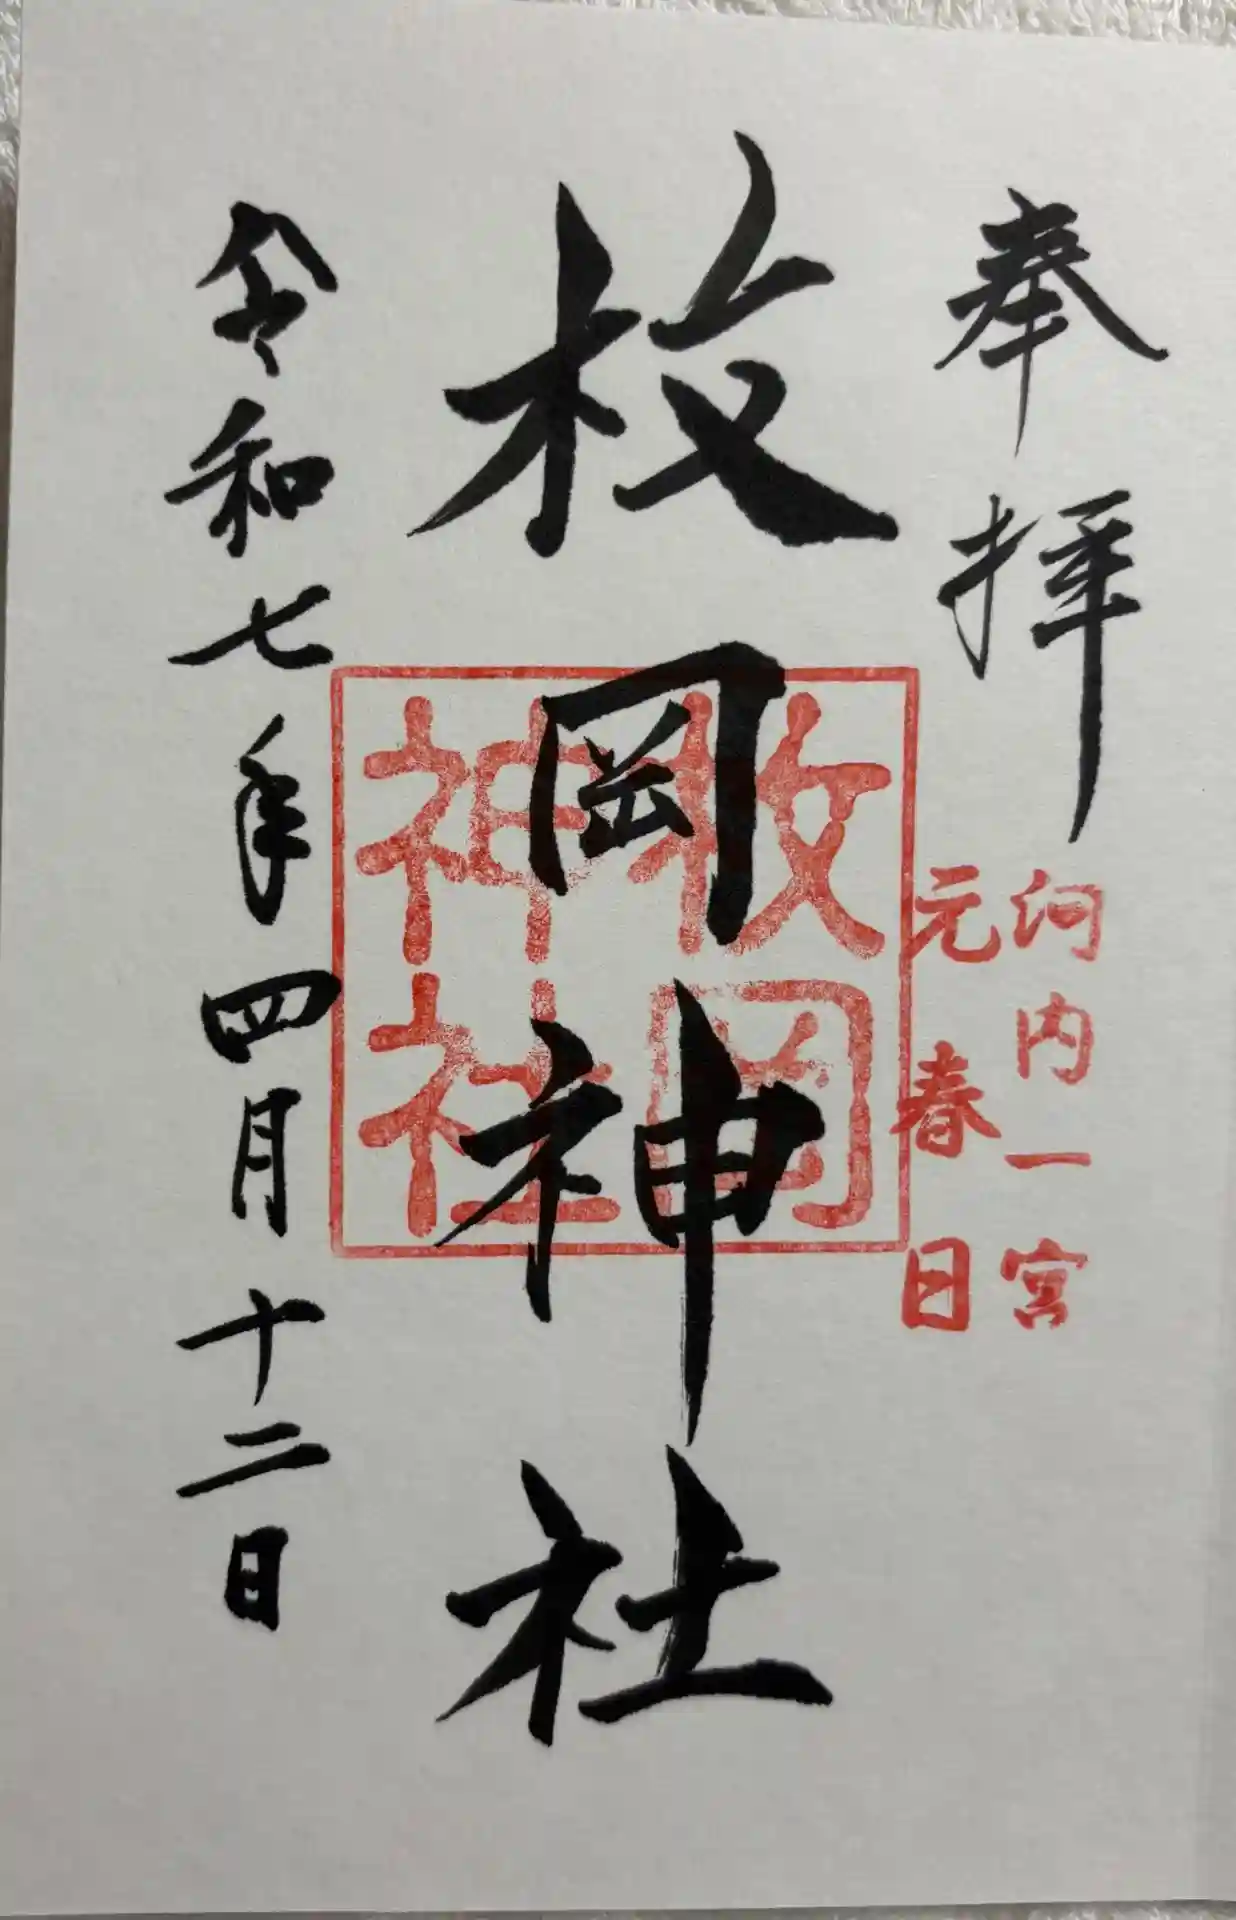 奉拝
河内一宮
元春日
枚岡神社
枚岡神社
令和七年四月十二日